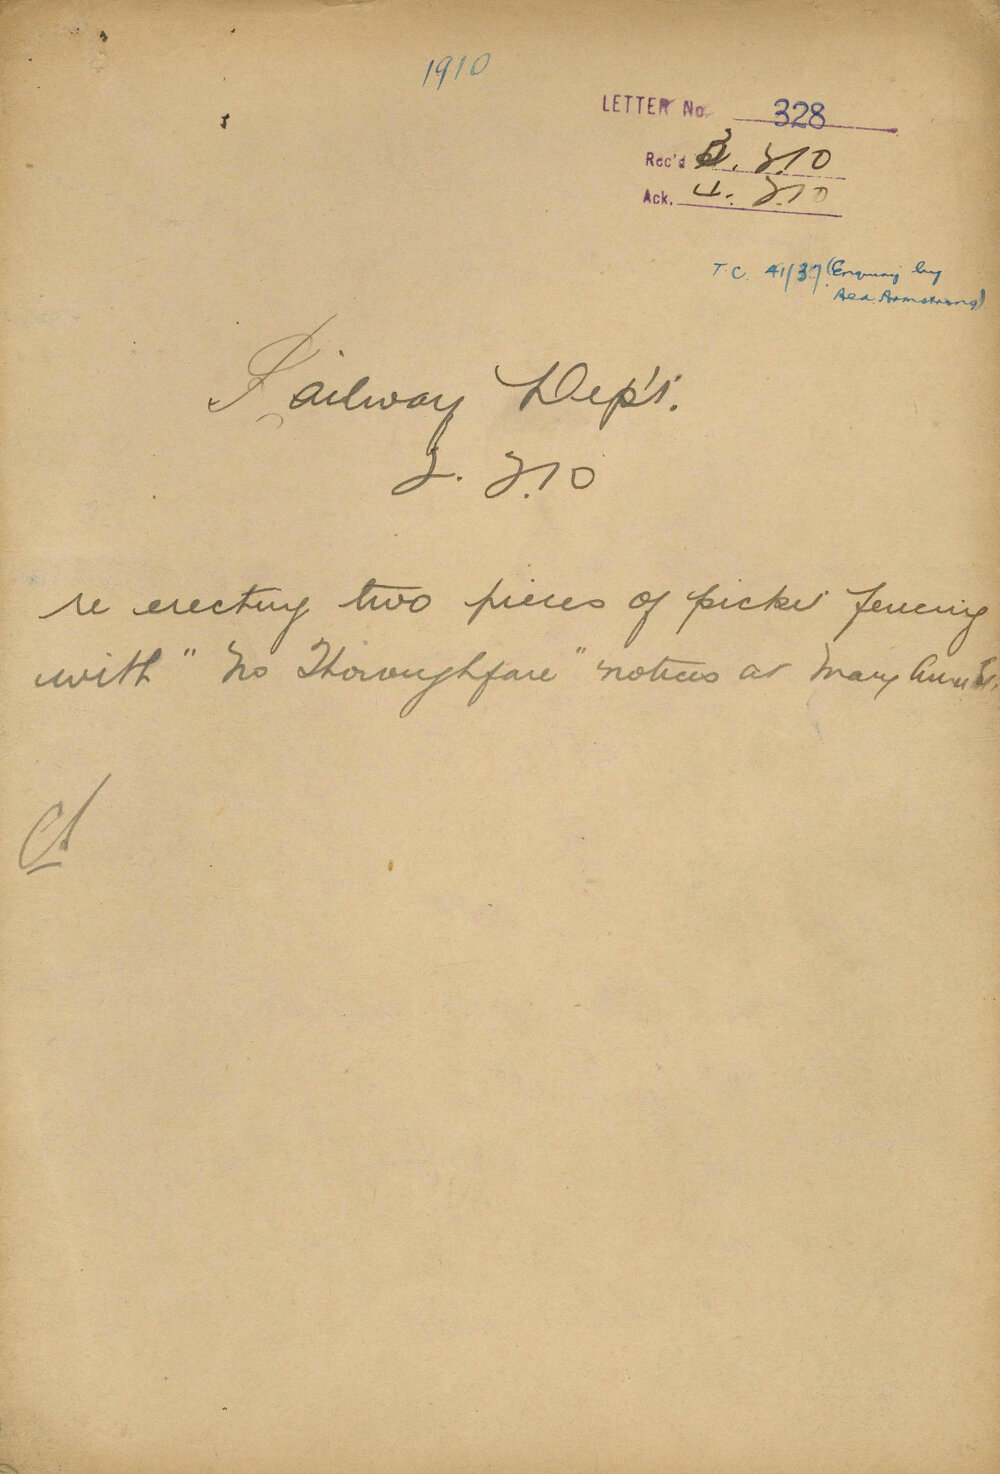 1910
LETTER No. 328
Rec'd 3. 2.10
Ack. 4. 2.10
T.C. 41/37 (Enquiry by
Ald. Armstrong)
Railway Dep't.
2. 2.10
re erecting two pieces of picket fencing
with "No Thoroughfare" notices at Mary Ann St.